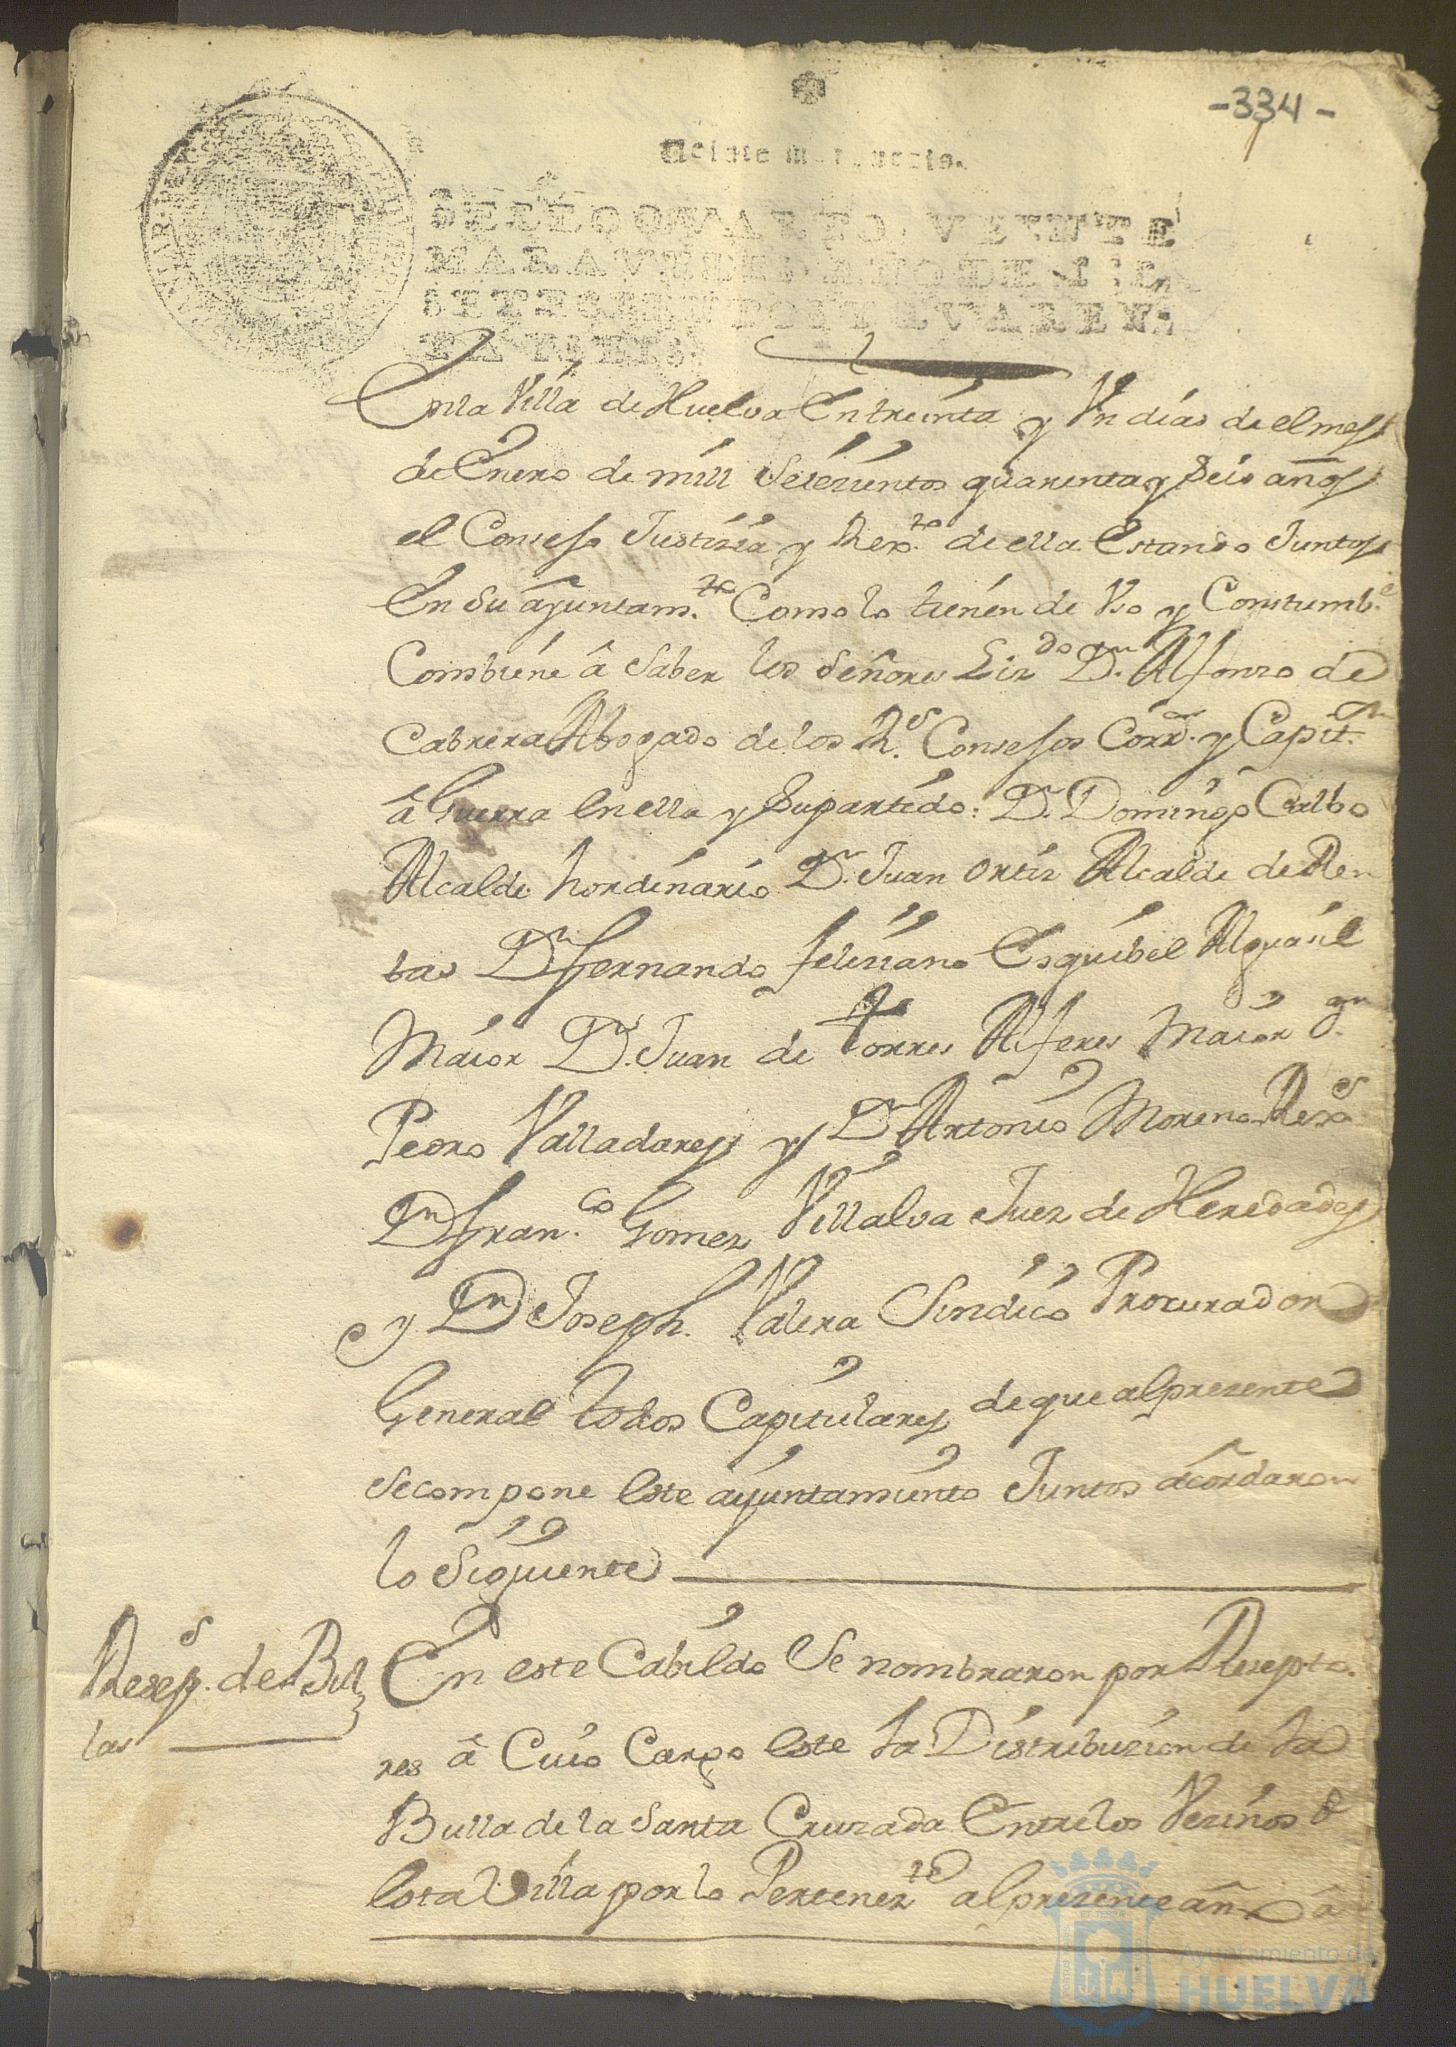 -334-
Veinte maravedis.
SELLO QVARTO, VEINTE
MARAVEDIS, AÑO DE MIL
SETECIENTOS Y QVAREN-
TA Y SEIS.
En la Villa de Huelva En treinta y Un dias de el mes
de Enero de mill Setezientos quarenta y Seis años
el Consejo Justizia y Rex.to de ella Estando Juntos
En su ayuntam.to Como lo tienen de Vso y Constumb.e
Combiene â Saber los Señores Liz.do D.n Alfonso de
Cabrera Abogado de los R.s Consejos Corr.or y Capit.n
â Guerra en ella y Su partido: D.n Domingo Calbo
Alcalde hordinario D.n Juan Ortiz Alcalde de Ren
tas D.n Fernando feliziano Esquibel Alguazil
Maior D.n Juan de Torres Alferes Maior D.n
Pedro Valladares y D.n Antonio Moreno Rex.s
D.n Fran.co Gomez Villalva Juez de Heredades
y D.n Joseph Valera Sindico Procurador
General todos Capitulares de que al presente
Se compone Este ayuntamiento Juntos acordaron
lo Siguiente
Resep.s de Bul
las
En este Cabildo Se nombraron por Resepto
res â Cuio Cargo este la Distribuzion de la
Bulla de la Santa Cruzada Entre los Vezinos de
esta Villa por lo Pertenez.te al presente año â
Ayuntamiento de
HUELVA